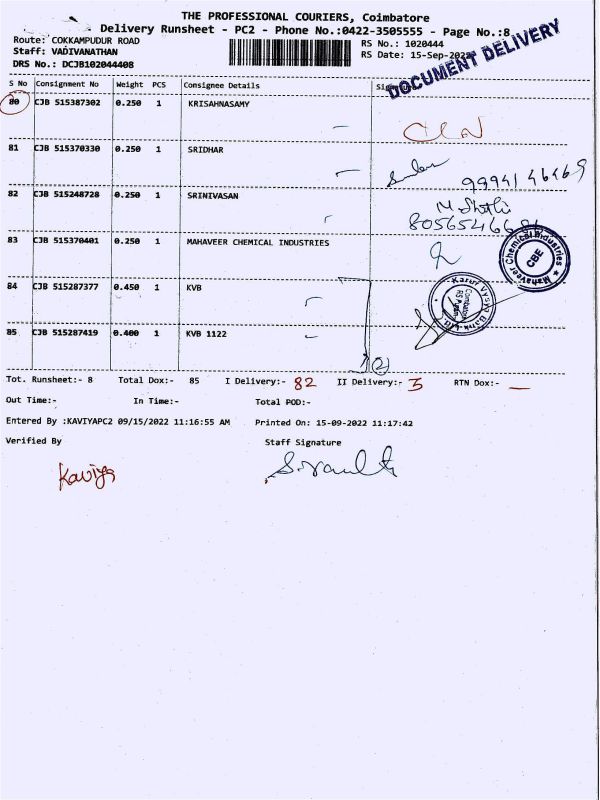 THE PROFESSIONAL COURIERS, Coimbatore
Delivery Runsheet - PC2 - Phone No.:0422-3505555 - Page No.:8
Route: COKKAMPUDUR ROAD
RS No.: 1020444
Staff: VADIVANATHAN
RS Date: 15-Sep-2022
DRS No.: DCJB102044408
DOCUMENT DELIVERY
S No Consignment No Weight PCS Consignee Details
80 CJB 515387302 0.250 1 KRISAHNASAMY
81 CJB 515370330 0.250 1 SRIDHAR
99941 46469
82 CJB 515248728 0.250 1 SRINIVASAN
83 CJB 515370401 0.250 1 MAHAVEER CHEMICAL INDUSTRIES
Mahaveer Chemical Industries ★ CBE
84 CJB 515287377 0.450 1 KVB
Karur Vysya Bank Ltd.
Coimbatore
85 CJB 515287419 0.400 1 KVB 1122
Tot. Runsheet:- 8 Total Dox:- 85 I Delivery:- 82 II Delivery:- 3 RTN Dox:- —
Out Time:- In Time:- Total POD:-
Entered By :KAVIYAPC2 09/15/2022 11:16:55 AM Printed On: 15-09-2022 11:17:42
Verified By Staff Signature
Kaviya